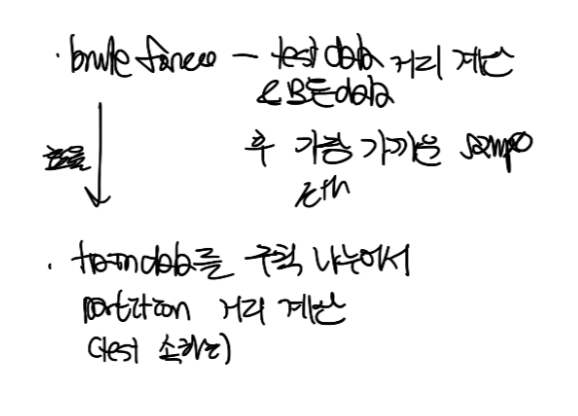 · brute force – test data 거리 계산
& 모든 data
후 가장 가까운 sample
kth
효율
· train data를 구획 나누어서
partition 거리 계산
(test 속하는)